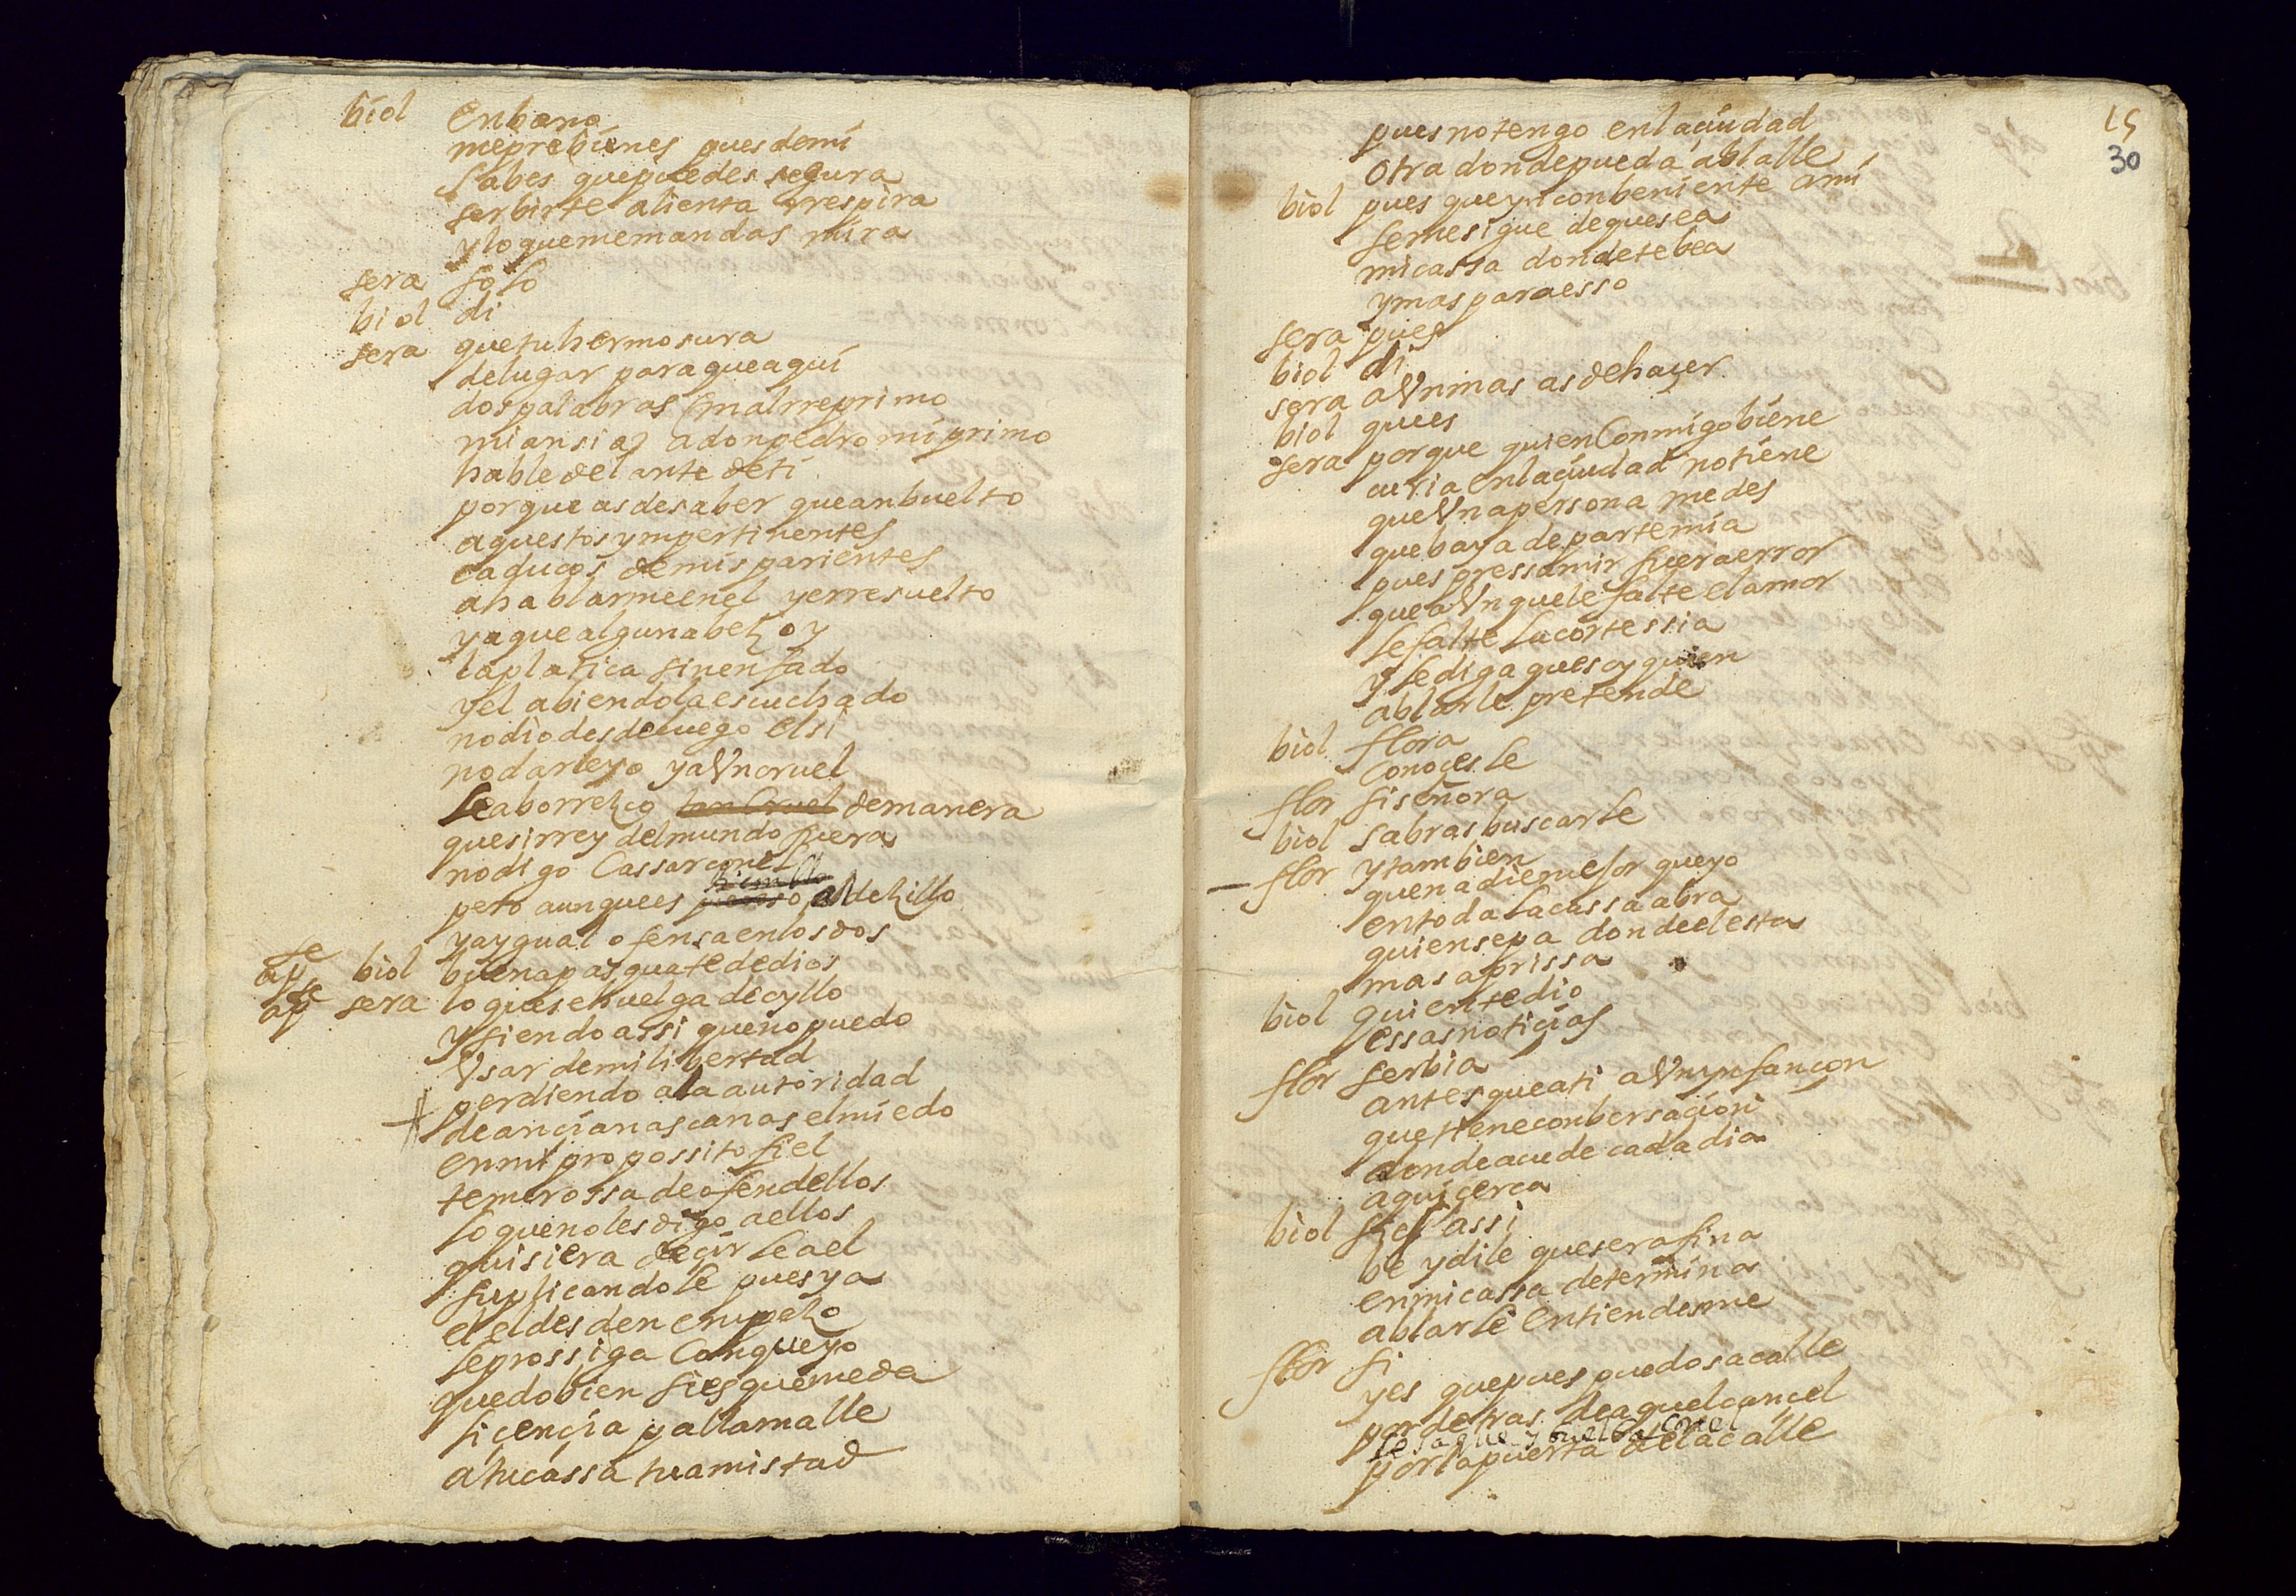 biol enbano
meprebienes puesdemi
sabes quepuedes segura
serbirte alienta rrespira
yloquememandas mira
sera solo
biol di
sera quetuhermosura
delugar paraqueaqui
dospalabras Cmalrreprimo
miansia) adonpedro miprimo
hable delante deti
porque asdesaber queanbuelto
aquestos ympertinentes
caducos demisparientes
ahablarmeenel yerresuelto
yaquealgunabez oy
laplatica sinenfado
yel abiendolaescuchado
nodiodesdeluego elsi
nodarleyo yaVncruel
leaborrezco tan Cruel demanera
quesirrey delmundo fuera
nodigo Cassarconel
pero aunquees al deZillo
yaygual ofensaenlosdos
apte biol buenapasquatededios
apte sera loquesehuelgadeoyllo
ysiendoassi quenopuedo
Vsar demilibertad
perdiendo ala autoridad
deancianascanas elmiedo
enmi propossito fiel
temerossa deofendellos
loquenolesdigo aellos
quisiera deçir leael
suplicandole puesya
el eldesden enpezo
leprossiga Conqueyo
quedobien siesquemeda
liçençia pallamalle
atucassa tuamistad
15
30
puesnotengo enlaçiudad
otradondepueda ablalle
biol pues queynconbeniente ami
semesigue dequesea
micassa dondetebea
ymasparaesso
sera pues
biol di
sera aVnmas asdehaçer
biol quees
sera porque quienConmigobiene
curia enlaçiudad notiene
queVnapersona medes
quebaya departemia
puespressumir fueraerror
queaVnquele falte elamor
lefalte lacortessia
y lediga quesoyquien
ablarle pretende
biol flora
Conoçesle
flor siseñora
biol sabrasbuscarle
flor ytambien
quenadiemejor queyo
entoda lacassaabra
quiensepa dondeelesta
masaprissa
biol quientedio
essasnotiçias
flor serbia
antesqueati aVnynfançon
quetieneconbersaçion
dondeacude cadadia
aquiçerca
biol siesassi
be ydile queserafina
enmicassa determina
ablarle entiendesme
flor si
yes quepues puedosacalle
pordetras deaquelcançel
lesaque y buelba Conel
porlapuerta delacalle